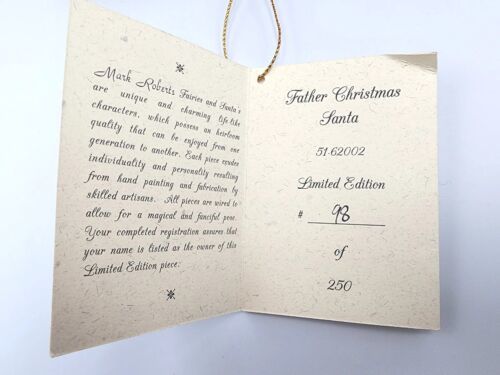 Mark Roberts Fairies and Santa's
are unique and charming life-like
characters, which possess an heirloom
quality that can be enjoyed from one
generation to another. Each piece exudes
individuality and personality resulting
from hand painting and fabrication by
skilled artisans. All pieces are wired to
allow for a magical and fanciful pose.
Your completed registration assures that
your name is listed as the owner of this
Limited Edition piece.
Father Christmas
Santa
51-62002
Limited Edition
# 98
of
250